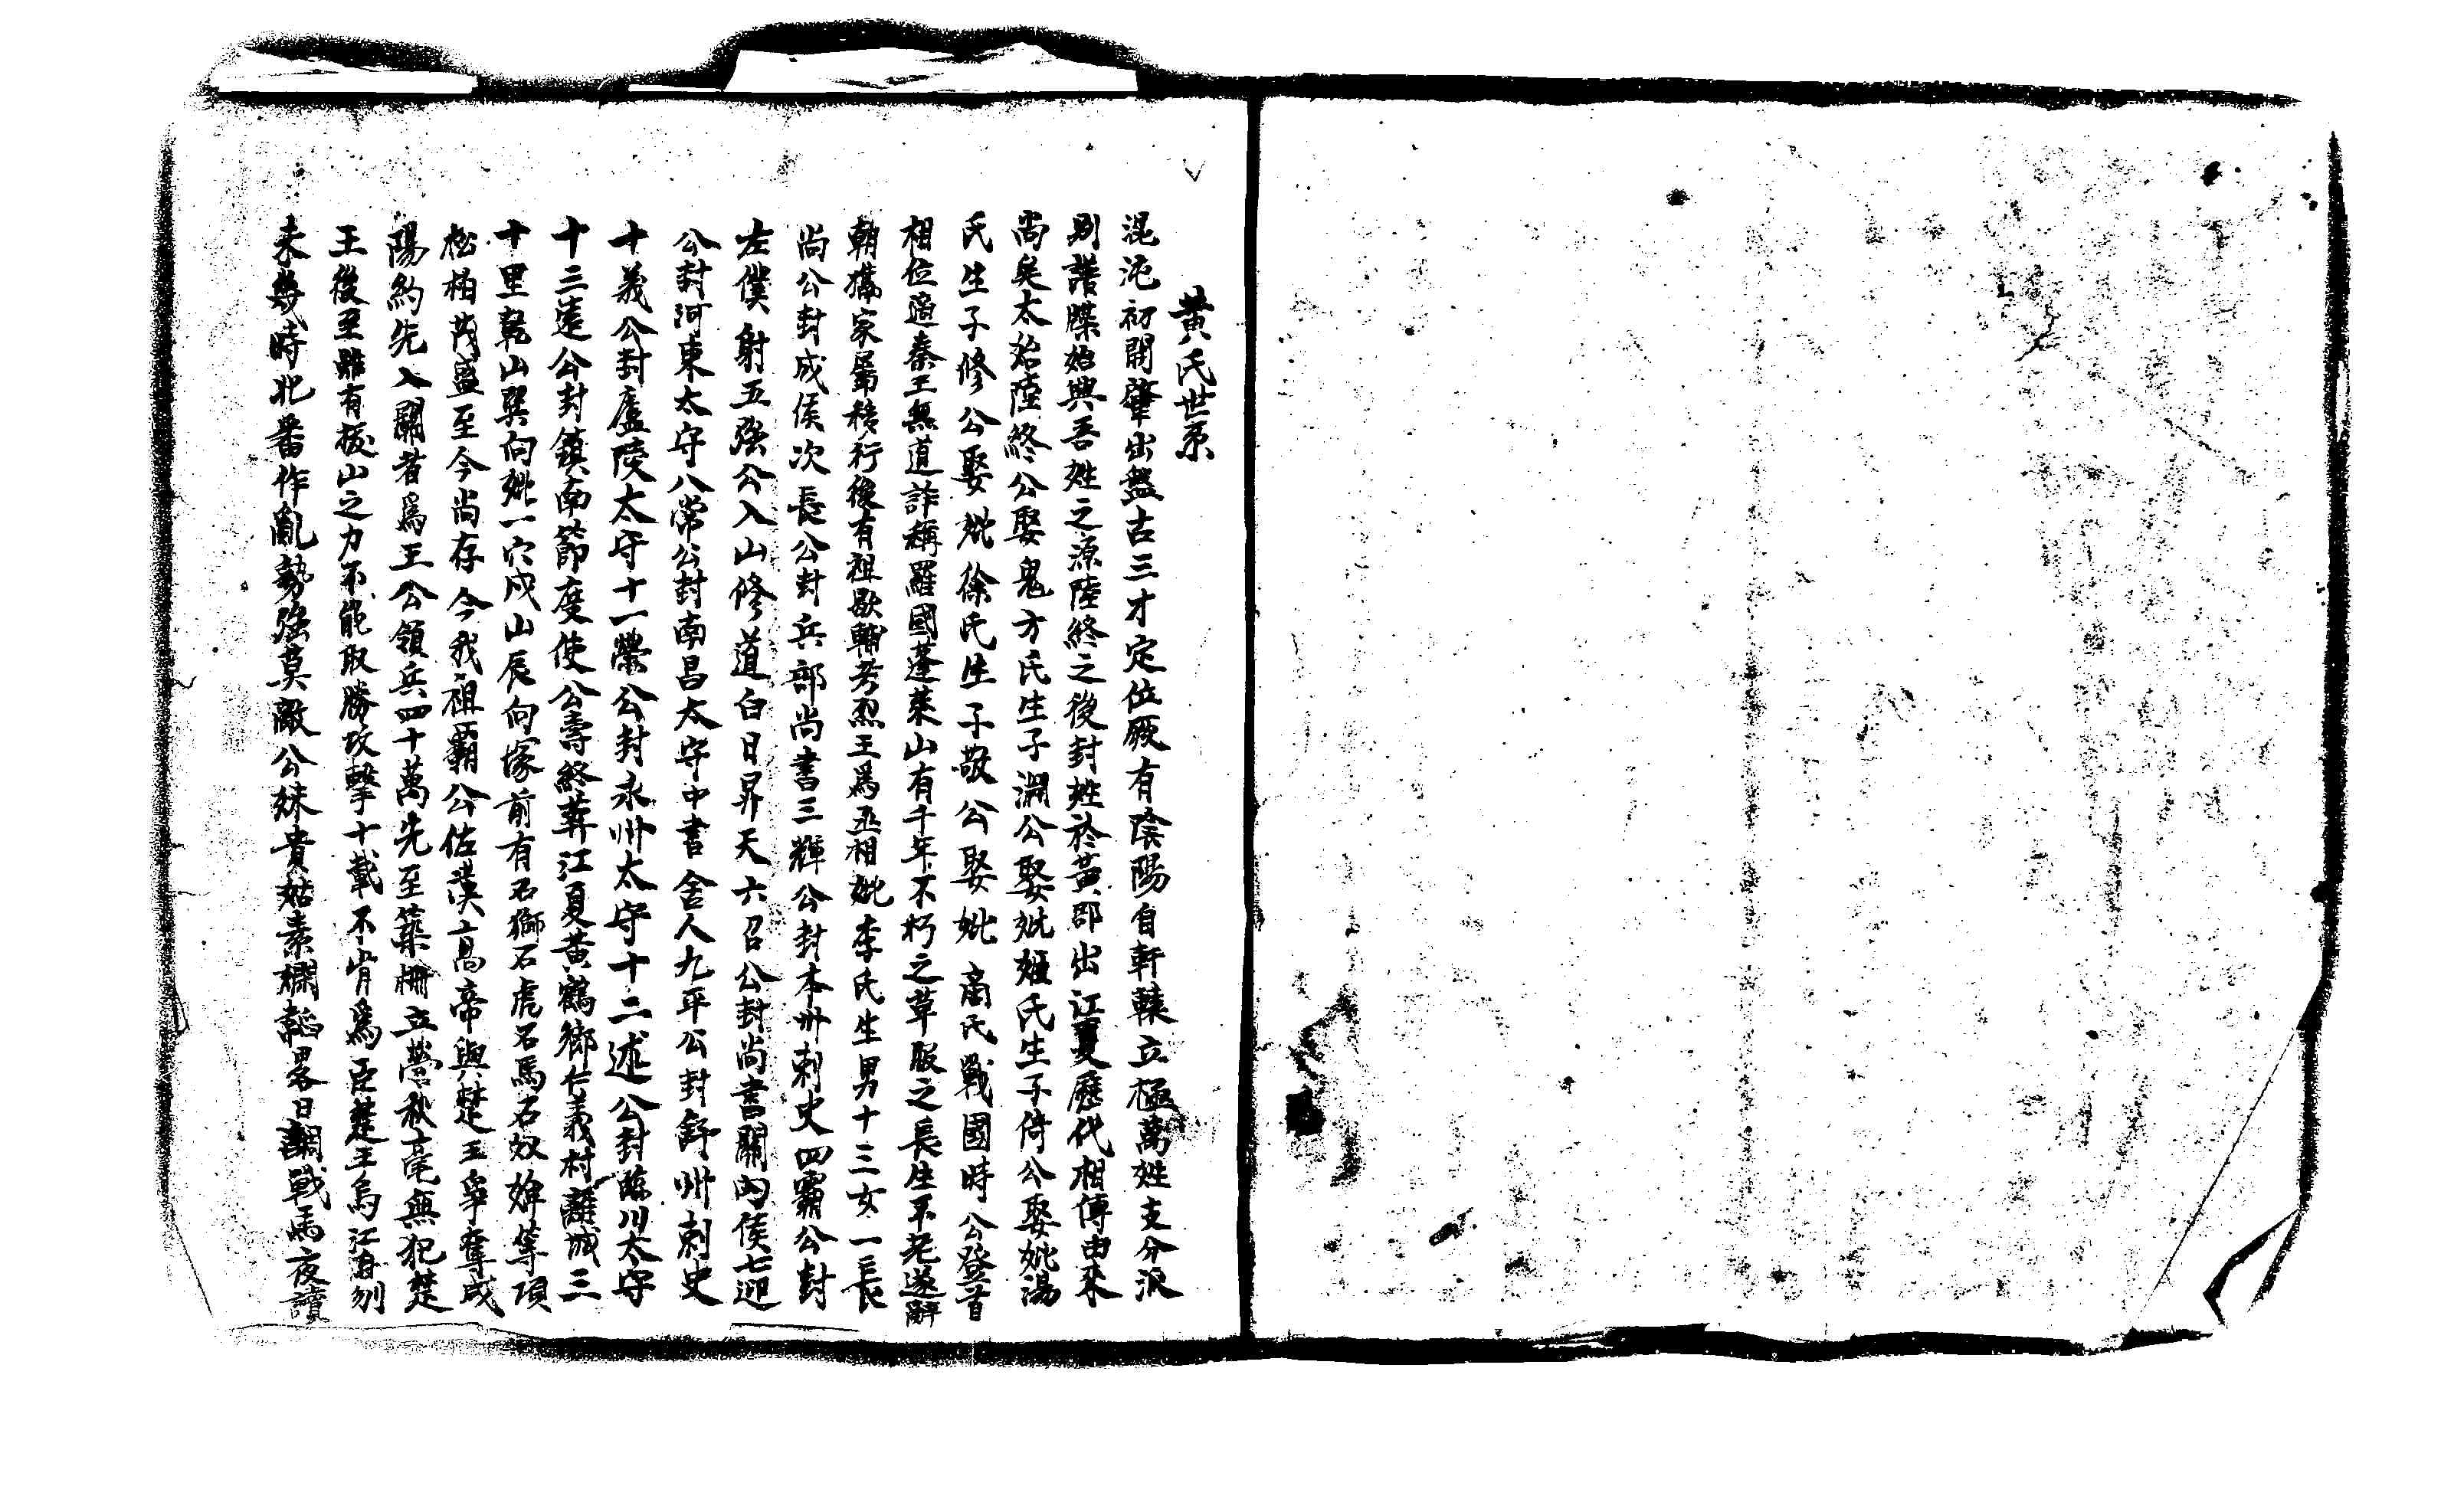 黃氏世系
混沌初開肇出盤古三才定位厥有陰陽自軒轅立極萬姓支分派
別譜牒始興吾姓之源陸終之後封姓於黃郡出江夏歷代相傳由來
尚矣太始陸終公娶鬼方氏生子淵公娶妣姬氏生子倚公娶妣湯
氏生子修公娶妣徐氏生子敬公娶妣高氏戰國時公登首
相位適秦王無道詐稱羅國蓬萊山有千年不朽之草服之長生不老遂辭
朝攜家屬移行後有祖歇輔考烈王為丞相妣李氏生男十三女一長
尚公封成侯次長公封兵部尚書三輝公封本州刺史四霸公封
左僕射五強公入山修道白日昇天六召公封尚書關內侯七迎
公封河東太守八常公封南昌太守中書舍人九平公封舒州刺史
十義公封廬陵太守十一榮公封永州太守十二述公封臨川太守
十三遠公封鎮南節度使公壽終葬江夏黃鶴鄉仁義村離城三
十里乾山巽向妣一穴戌山辰向塚前有石獅石虎石馬石奴婢等項
松柏茂盛至今尚存今我祖霸公佐漢高帝與楚王爭奪咸
陽約先入關者為王公領兵四十萬先至築柵立營秋毫無犯楚
王後至雖有拔山之力不能取勝攻擊十載不肯為臣楚王烏江自刎
未幾時北番作亂勢強莫敵公妹貴姑素嫻韜畧日調戰馬夜讀